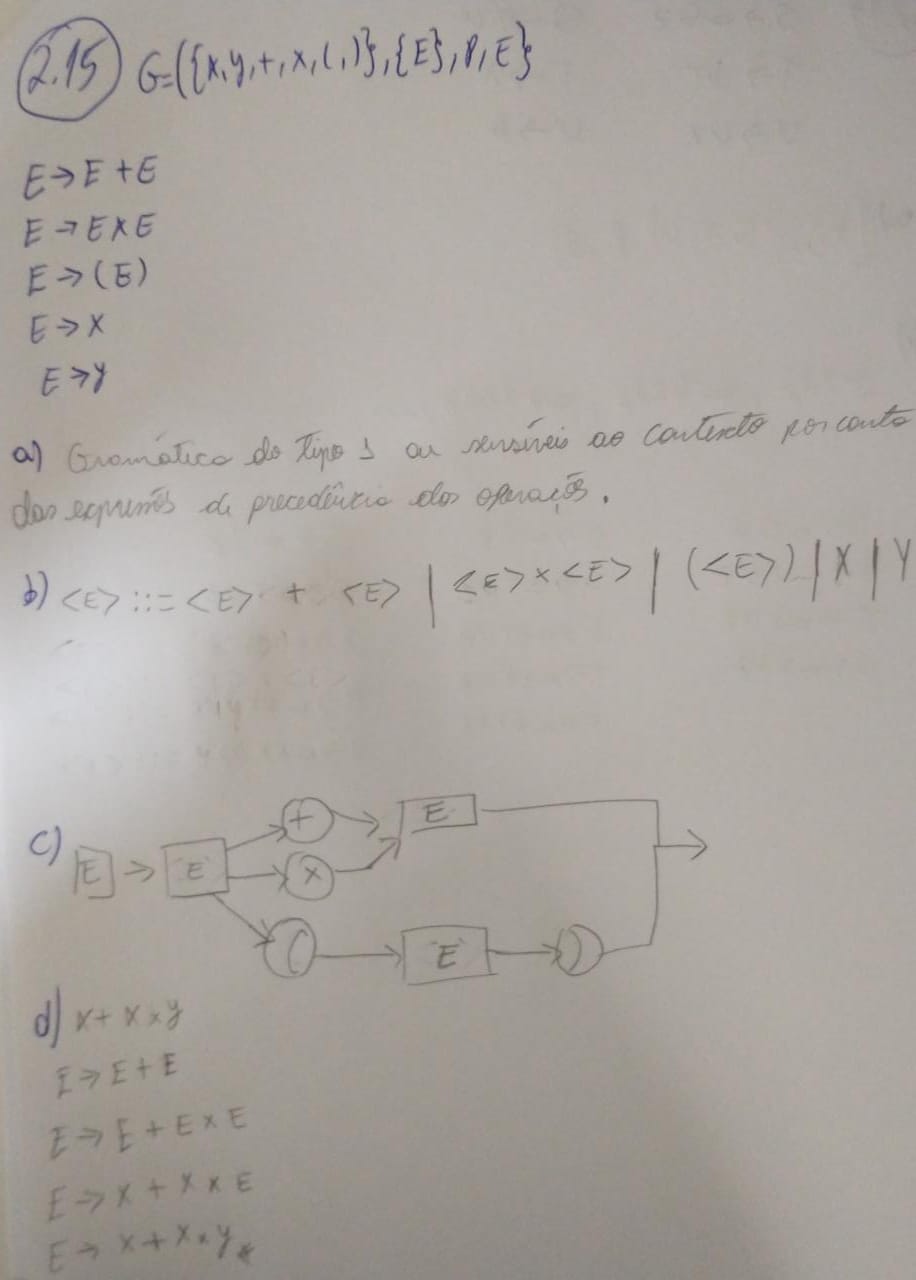 2.15 G=({x,y,+,x,(,)},{E},P,E}
E→E+E
E→EXE
E→(E)
E→X
E→y
a) Gramática do tipo 1 ou sensíveis ao contexto por conta
das de precedência das operações.
b) <E> ::= <E> + <E> | <E> x <E> | (<E>) | X | Y
c) E → E + x E
( E )
d) x + x x y
E → E + E
E → E + E x E
E → X + X x E
E → X + X x y